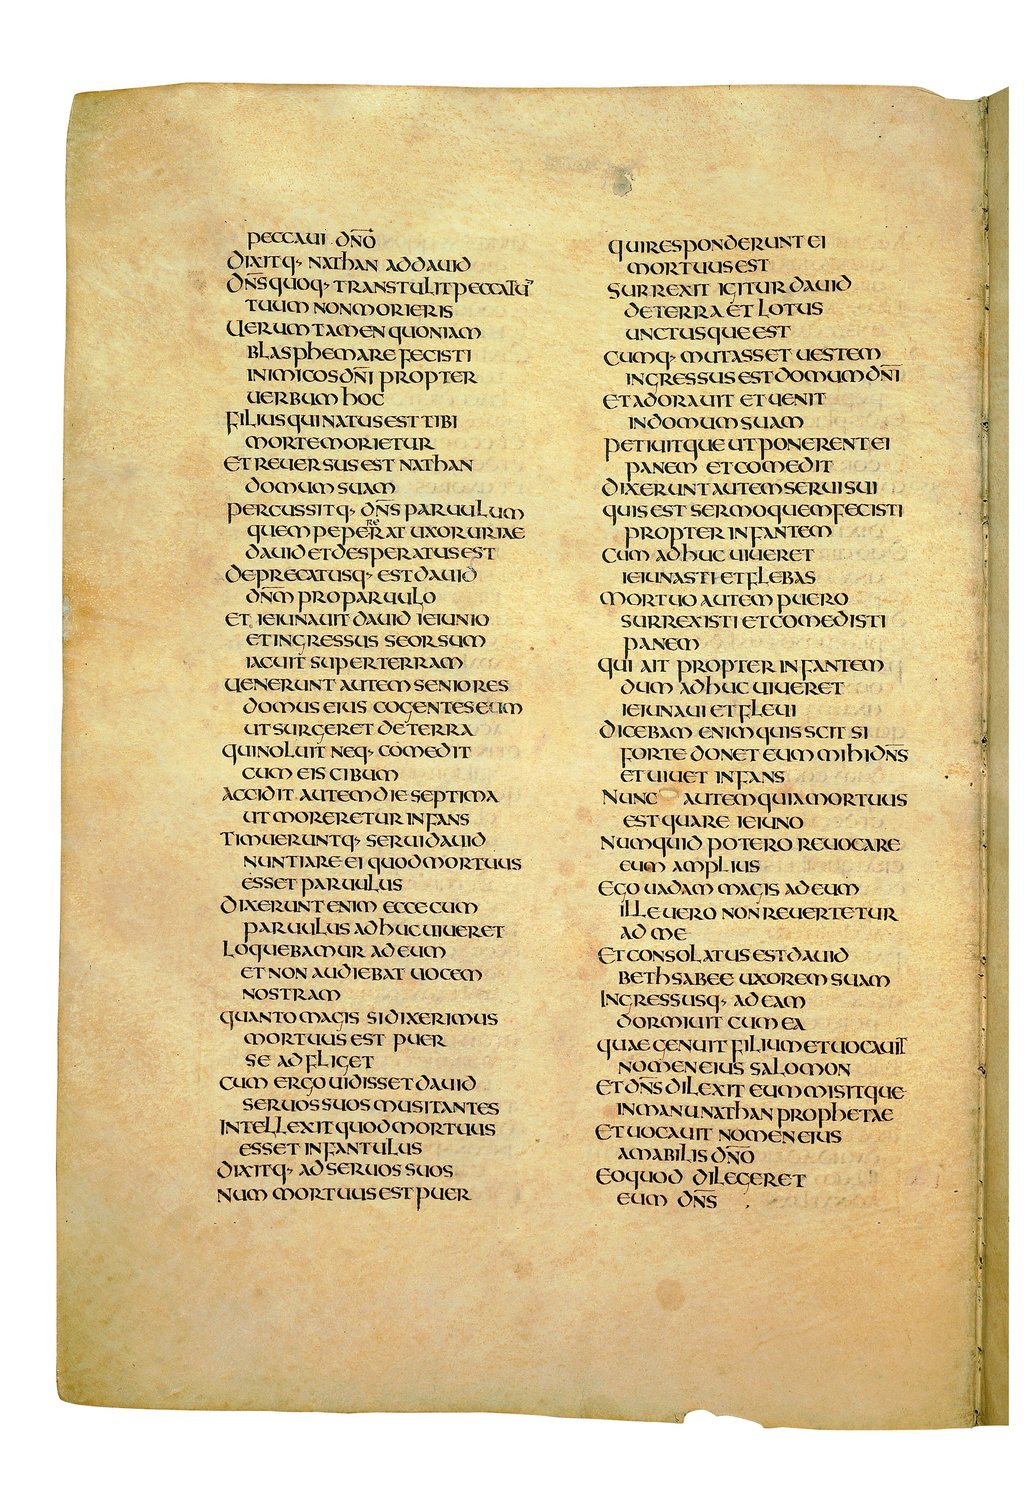 PECCAVI DN̅O
DIXITQ· NATHAN AD DAVID
DN̅S QUOQ· TRANSTULIT PECCATU̅
TUUM NON MORIERIS
UERUMTAMEN QUONIAM
BLASPHEMARE FECISTI
INIMICOS DN̅I PROPTER
UERBUM HOC
FILIUS QUI NATUS EST TIBI
MORTE MORIETUR
ET REUERSUS EST NATHAN
DOMUM SUAM
PERCUSSITQ· DN̅S PARUULUM
QUEM PEPERERAT UXOR URIAE
DAUID ET DESPERATUS EST
DEPRECATUSQ· EST DAUID
DN̅M PRO PARUULO
ET IEIUNAUIT DAUID IEIUNIO
ET INGRESSUS SEORSUM
IACUIT SUPER TERRAM
UENERUNT AUTEM SENIORES
DOMUS EIUS COGENTES EUM
UT SURGERET DE TERRA
QUI NOLUIT NEQ· COMEDIT
CUM EIS CIBUM
ACCIDIT AUTEM DIE SEPTIMA
UT MORERETUR INFANS
TIMUERUNTQ· SERUI DAUID
NUNTIARE EI QUOD MORTUUS
ESSET PARUULUS
DIXERUNT ENIM ECCE CUM
PARUULUS ADHUC UIUERET
LOQUEBAMUR AD EUM
ET NON AUDIEBAT UOCEM
NOSTRAM
QUANTO MAGIS SI DIXERIMUS
MORTUUS EST PUER
SE ADFLIGET
CUM ERGO UIDISSET DAUID
SERUOS SUOS MUSITANTES
INTELLEXIT QUOD MORTUUS
ESSET INFANTULUS
DIXITQ· AD SERUOS SUOS
NUM MORTUUS EST PUER
QUI RESPONDERUNT EI
MORTUUS EST
SURREXIT IGITUR DAUID
DE TERRA ET LOTUS
UNCTUSQUE EST
CUMQ· MUTASSET UESTEM
INGRESSUS EST DOMUM DN̅I
ET ADORAUIT ET UENIT
IN DOMUM SUAM
PETIUITQUE UT PONERENT EI
PANEM ET COMEDIT
DIXERUNT AUTEM SERUI SUI
QUIS EST SERMO QUEM FECISTI
PROPTER INFANTEM
CUM ADHUC UIUERET
IEIUNASTI ET FLEBAS
MORTUO AUTEM PUERO
SURREXISTI ET COMEDISTI
PANEM
QUI AIT PROPTER INFANTEM
DUM ADHUC UIUERET
IEIUNAUI ET FLEUI
DICEBAM ENIM QUIS SCIT SI
FORTE DONET EUM MIHI DN̅S
ET UIUET INFANS
NUNC AUTEM QUIA MORTUUS
EST QUARE IEIUNO
NUMQUID POTERO REUOCARE
EUM AMPLIUS
EGO UADAM MAGIS AD EUM
ILLE UERO NON REUERTETUR
AD ME
ET CONSOLATUS EST DAUID
BETHSABEE UXOREM SUAM
INGRESSUSQ· AD EAM
DORMIUIT CUM EA
QUAE GENUIT FILIUM ET UOCAUIT
NOMEN EIUS SALOMON
ET DN̅S DILEXIT EUM MISITQUE
IN MANU NATHAN PROPHETAE
ET UOCAUIT NOMEN EIUS
AMABILIS DN̅O
EO QUOD DILEGERET
EUM DN̅S